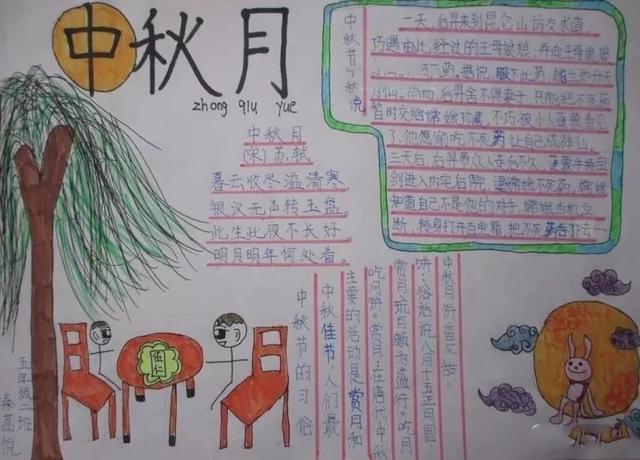 中秋月
zhong qiu yue
中秋月
(宋)苏轼
暮云收尽溢清寒
银汉无声转玉盘
此生此夜不长好
明月明年何处看。
中秋节传说
一天,后羿来到昆仑山访友求道
巧遇由此经过的王母娘娘,
不死药。据说,服下此药,能
成仙。然而,后羿舍不得妻子,只能把不死药
暂时交给嫦娥珍藏,不巧被小人蓬蒙看见
了,他想偷吃不死药让自己成神仙。
三天后,后羿带众人走
剑进入内宅后院,逼嫦娥不死药,嫦娥
知道自己不是他的对手,嫦娥当机立
断,转身打开百宝箱,把不死药吞下去……
中秋节的习俗
中秋佳节,人们最
主要的活动是赏月和
吃月饼。赏月:在唐代,中秋
赏月玩月颇为盛行。吃月
饼:俗话说八月十五正月圆,
中秋月饼香又甜。
伍仁
五年级二班